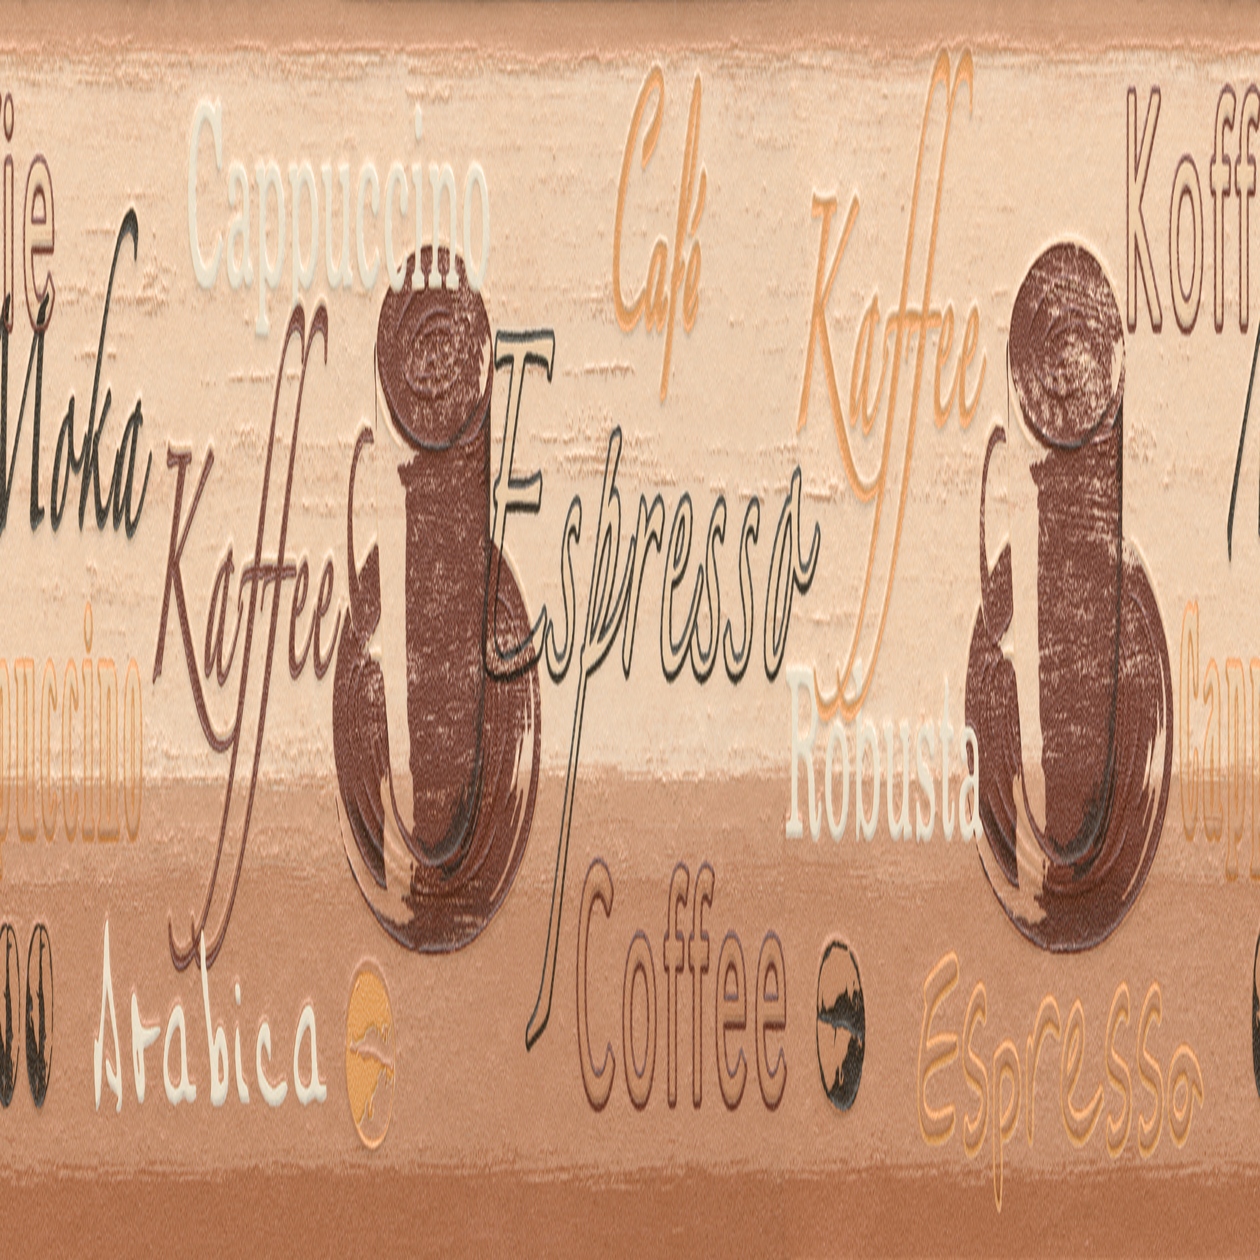 Cappuccino
Café
Kaffee
Koff
Moka
Kaffee
Espresso
puccino
Robusta
Capp
Arabica
Coffee
Espresso